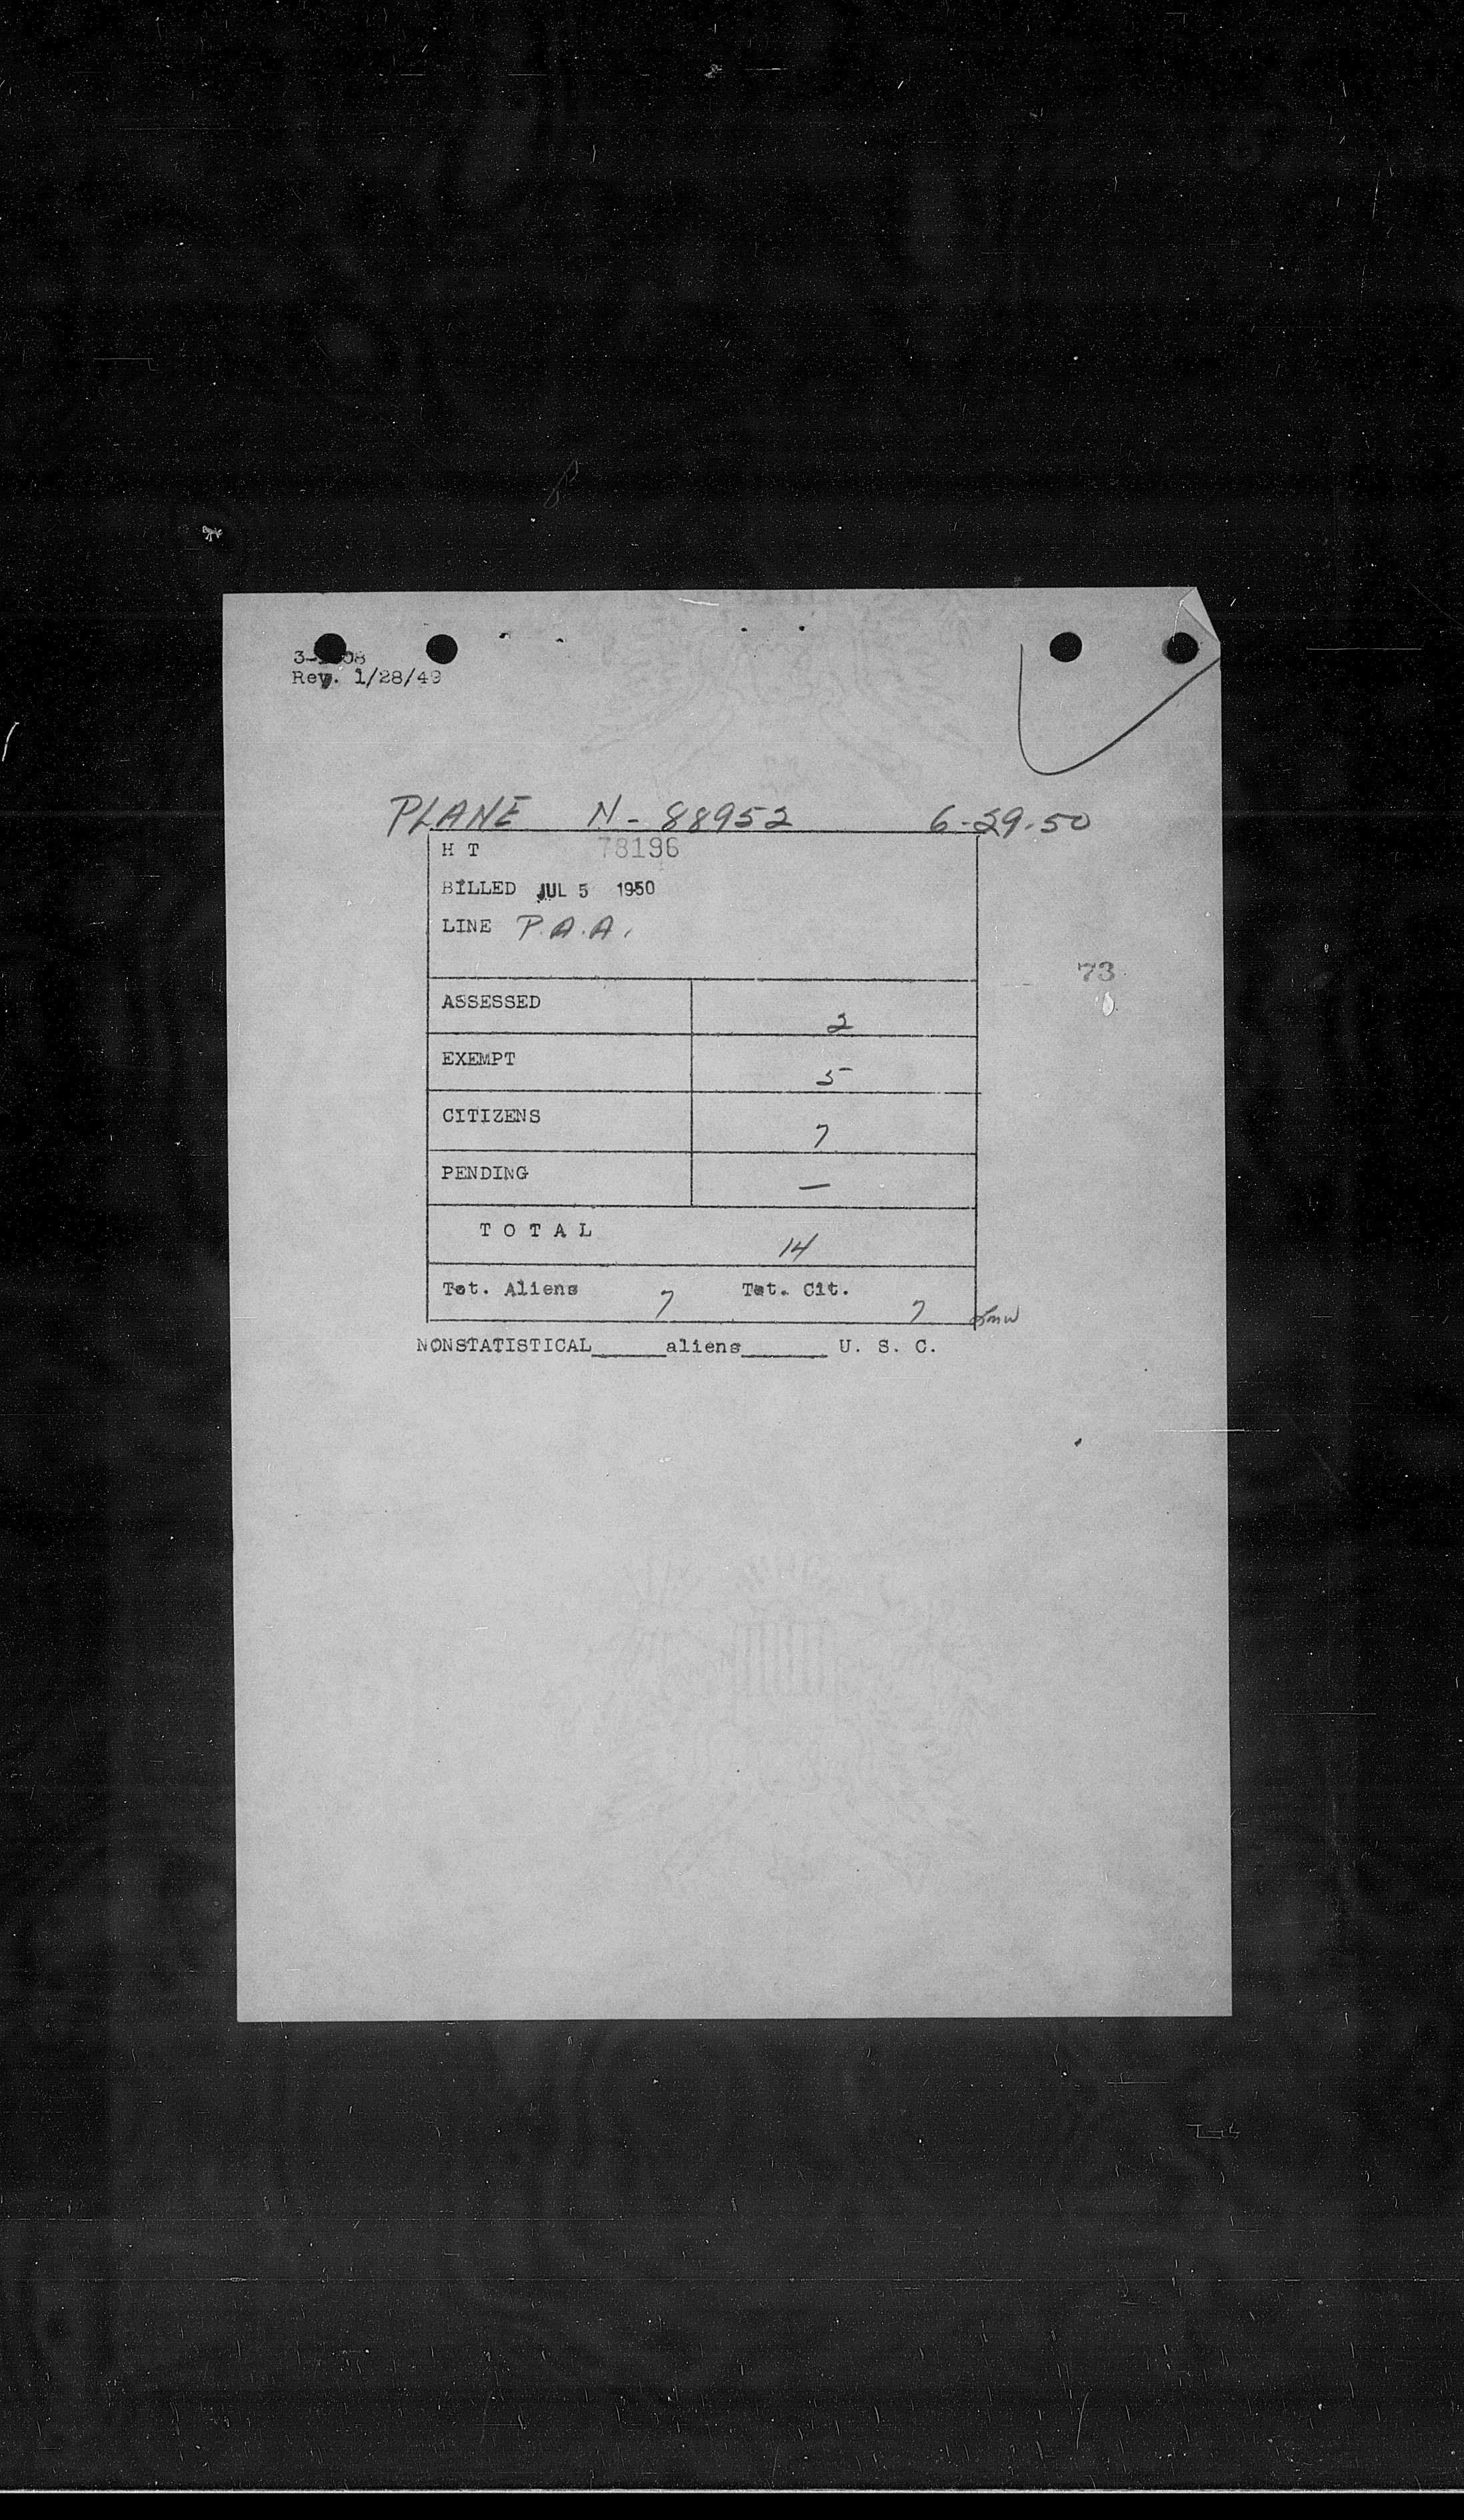 Rev. 1/28/49
PLANE N-88952 6-29-50
H T 78196
BILLED JUL 5 1950
LINE P.A.A.
73
ASSESSED 2
EXEMPT 5
CITIZENS 7
PENDING —
T O T A L 14
Tot. Aliens 7 Tot. Cit. 7
NONSTATISTICAL_____aliens______ U. S. C.